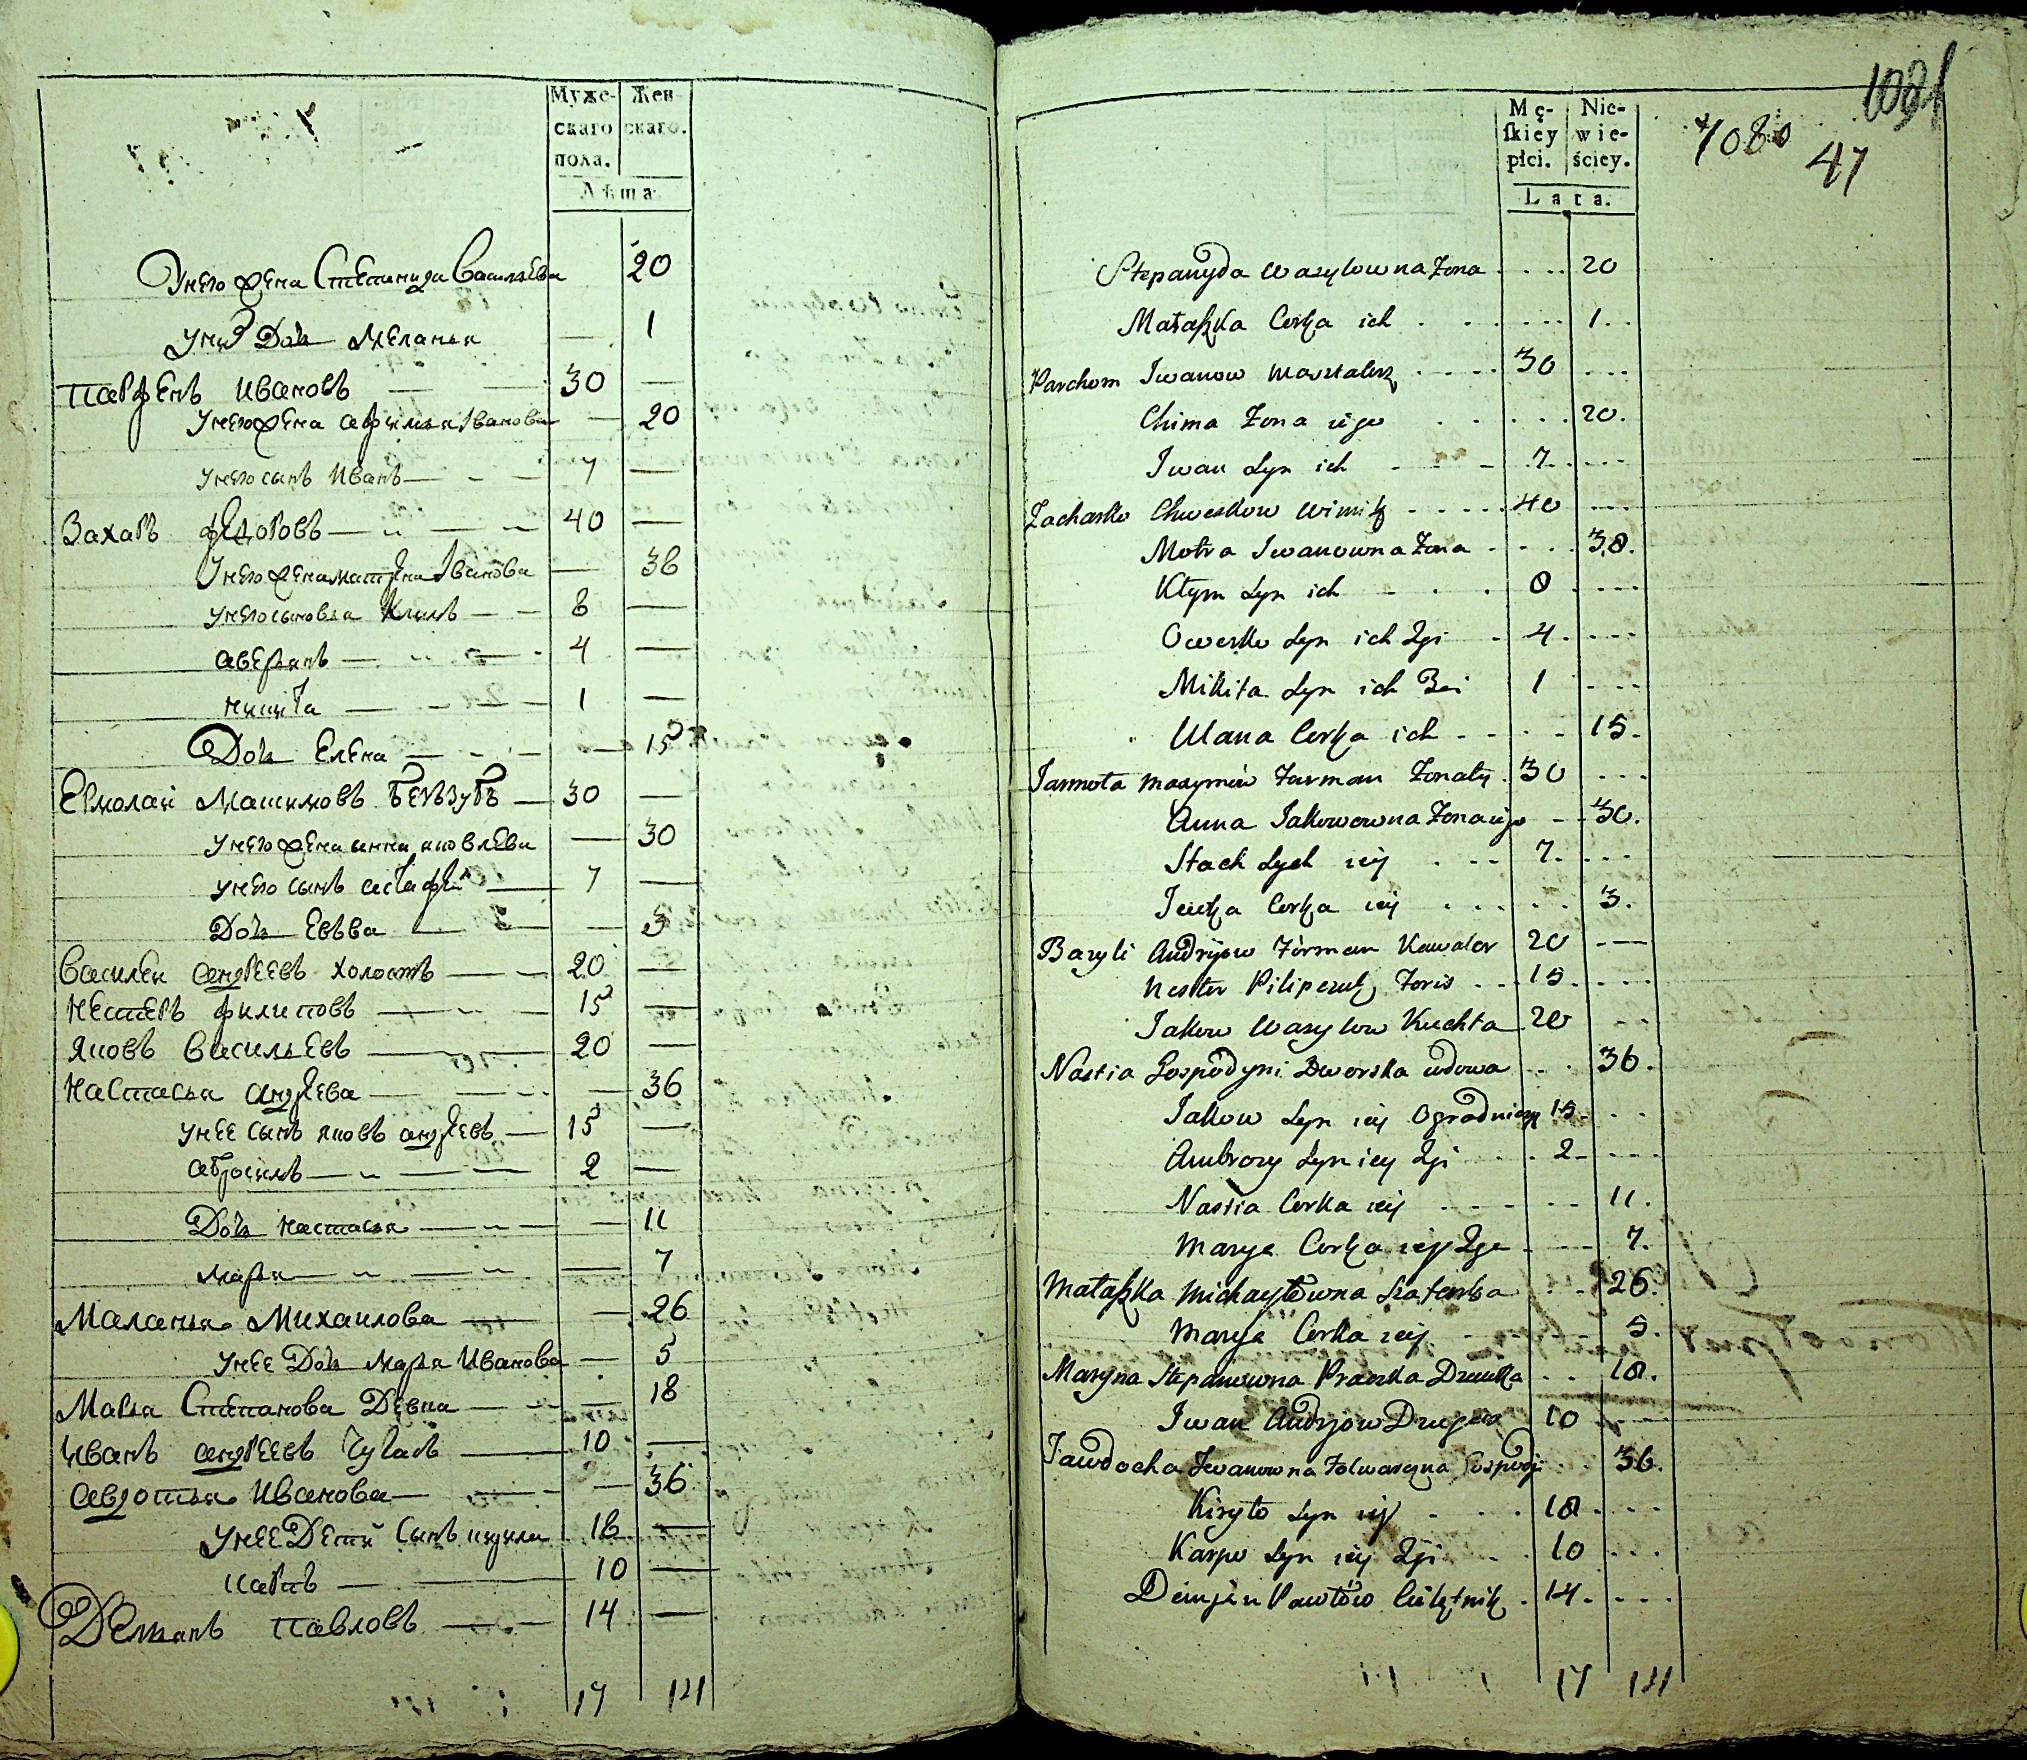 Муже-
скаго
пола.
Жен-
скаго.
Лѣта.
У него жена Степанида Васильева 20
у них Доч Меланья — 1
Парфенъ Ивановъ — 30 —
У него жена Афимья Иванова — 20
у него сынъ Иванъ — 7 —
Захаръ Федоровъ — 40 —
У него жена Матрена Иванова — 38
у него сыновья Климъ — 8 —
Аверьянъ — 4 —
Никита — 1 —
Доч Елена — — 15
Ермолай Машимовъ Белзубъ — 30 —
у него жена Анна Яковлева — 30
у него сынъ Астафей — 7 —
Доч Евва — — 3
Василеи Андреевъ холостъ — 20 —
Нестеръ Филиповъ — 15 —
Яковъ Васильевъ — 20 —
Настасья Андреева — — 36
у нее сынъ Яковъ Андреевъ — 15 —
Абросимъ — 2 —
Доч Настасья — — 11
Марья — — 7
Маланья Михаилова — — 26
у нее Доч Марья Иванова — 5
Марья Степанова Девка — — 18
Иванъ Андреевъ — 10 —
Авдотья Иванова — — 36
у нее Дети Сынъ Кирила 18 —
Карпъ — 10 —
Демьянъ Павловъ — 14 —
17 14
1081
1080
47
Mę-
ſkiey
płci.
Nie-
wie-
ściey.
Lata.
Stepanyda Wasylowna Zona . . . . 20
Małaszka Corka ich . . . . . . 1 . .
Parchom Iwanow Masztalerz . . . . 30 . . .
Chima Zona iego . . . . . 20.
Iwan Syn ich . . . - 7. . . .
Zacharko Chweskow Winnik - - - - - 40 . . .
Motra Iwanowna Zona . . . . 38.
Kłym Syn ich . . . 8 . . . .
Owerko Syn ich 2gi . 4. . . .
Mikita Syn ich 3ci 1 . . .
Ulana Corka ich - - . - 15.
Jarmoła Maxymów Furman Zonaty . 30 . . .
Anna Jakowowna Zona iego - - 30.
Stach Syn iey . - - 7. . . .
Iewka Corka iey . . . . . 3.
Bazyli Andryjow Fórman Kawaler 20 - - -
Nester Pilipczuk Foris - - . 15. . . .
Jakow Wasylow Kuchta 20 . .
Nastia Gospodyni Dworska wdowa . . . 36.
Jakow Syn iey Ogrodniczy 15. . .
Ambrozy Syn iey 2gi . . 2 - . . .
Nastia Corka iey . . - - - 11.
Marya Corka iey 2ga . . - - 7.
Małaszka Michayłowna Szafarka . . . 26.
Marya Corka iey . . - . 5.
Maryna Stepanowna Praczka Dziewka . . 18.
Iwan Andryjow 10 - - -
Jawdocha Iwanowna Folwarczna Gospodi . . 36.
Kiryło Syn iey . . . 18. . . .
Karpo Syn iey 2gi . . 10 . . .
Demjan Pawłów Cielętnik . 14. . . .
17 14